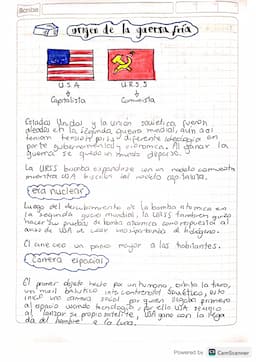 Scribe
origen de la guerra fría
U.S.A
U.R.S.S
Capitalista
Comunista
Estados Unidos y la unión soviética fueron
aliados en la segunda guerra mundial, aun así
tenían tensión por su diferente ideología en
parte gubernamental y económica. Al ganar la
guerra se quedo un mundo
La URSS buscaba expandirse con un modelo comunista
mientras USA buscaba del modelo capitalista.
Era nuclear
Luego del descubrimiento de la bomba atomica en
la segunda guerra mundial, la URSS tambien
hacer sus pruebas de bomba atomica como respuesta al
de USA de crear una bomba de hidógeno.
El un panico mayor a los habitantes.
Carrera espacial
El primer objeto hecho por un humano, orbito la tierra,
un misil balistico intercontinental Sovietico, esto
inició una carrera social por quien llegaba primero
al espacio usando tecnología, por ello USA siguió
al lanzar su propio satelite, USA gano con la llegada
del hombre a la luna.
Powered by CamScanner